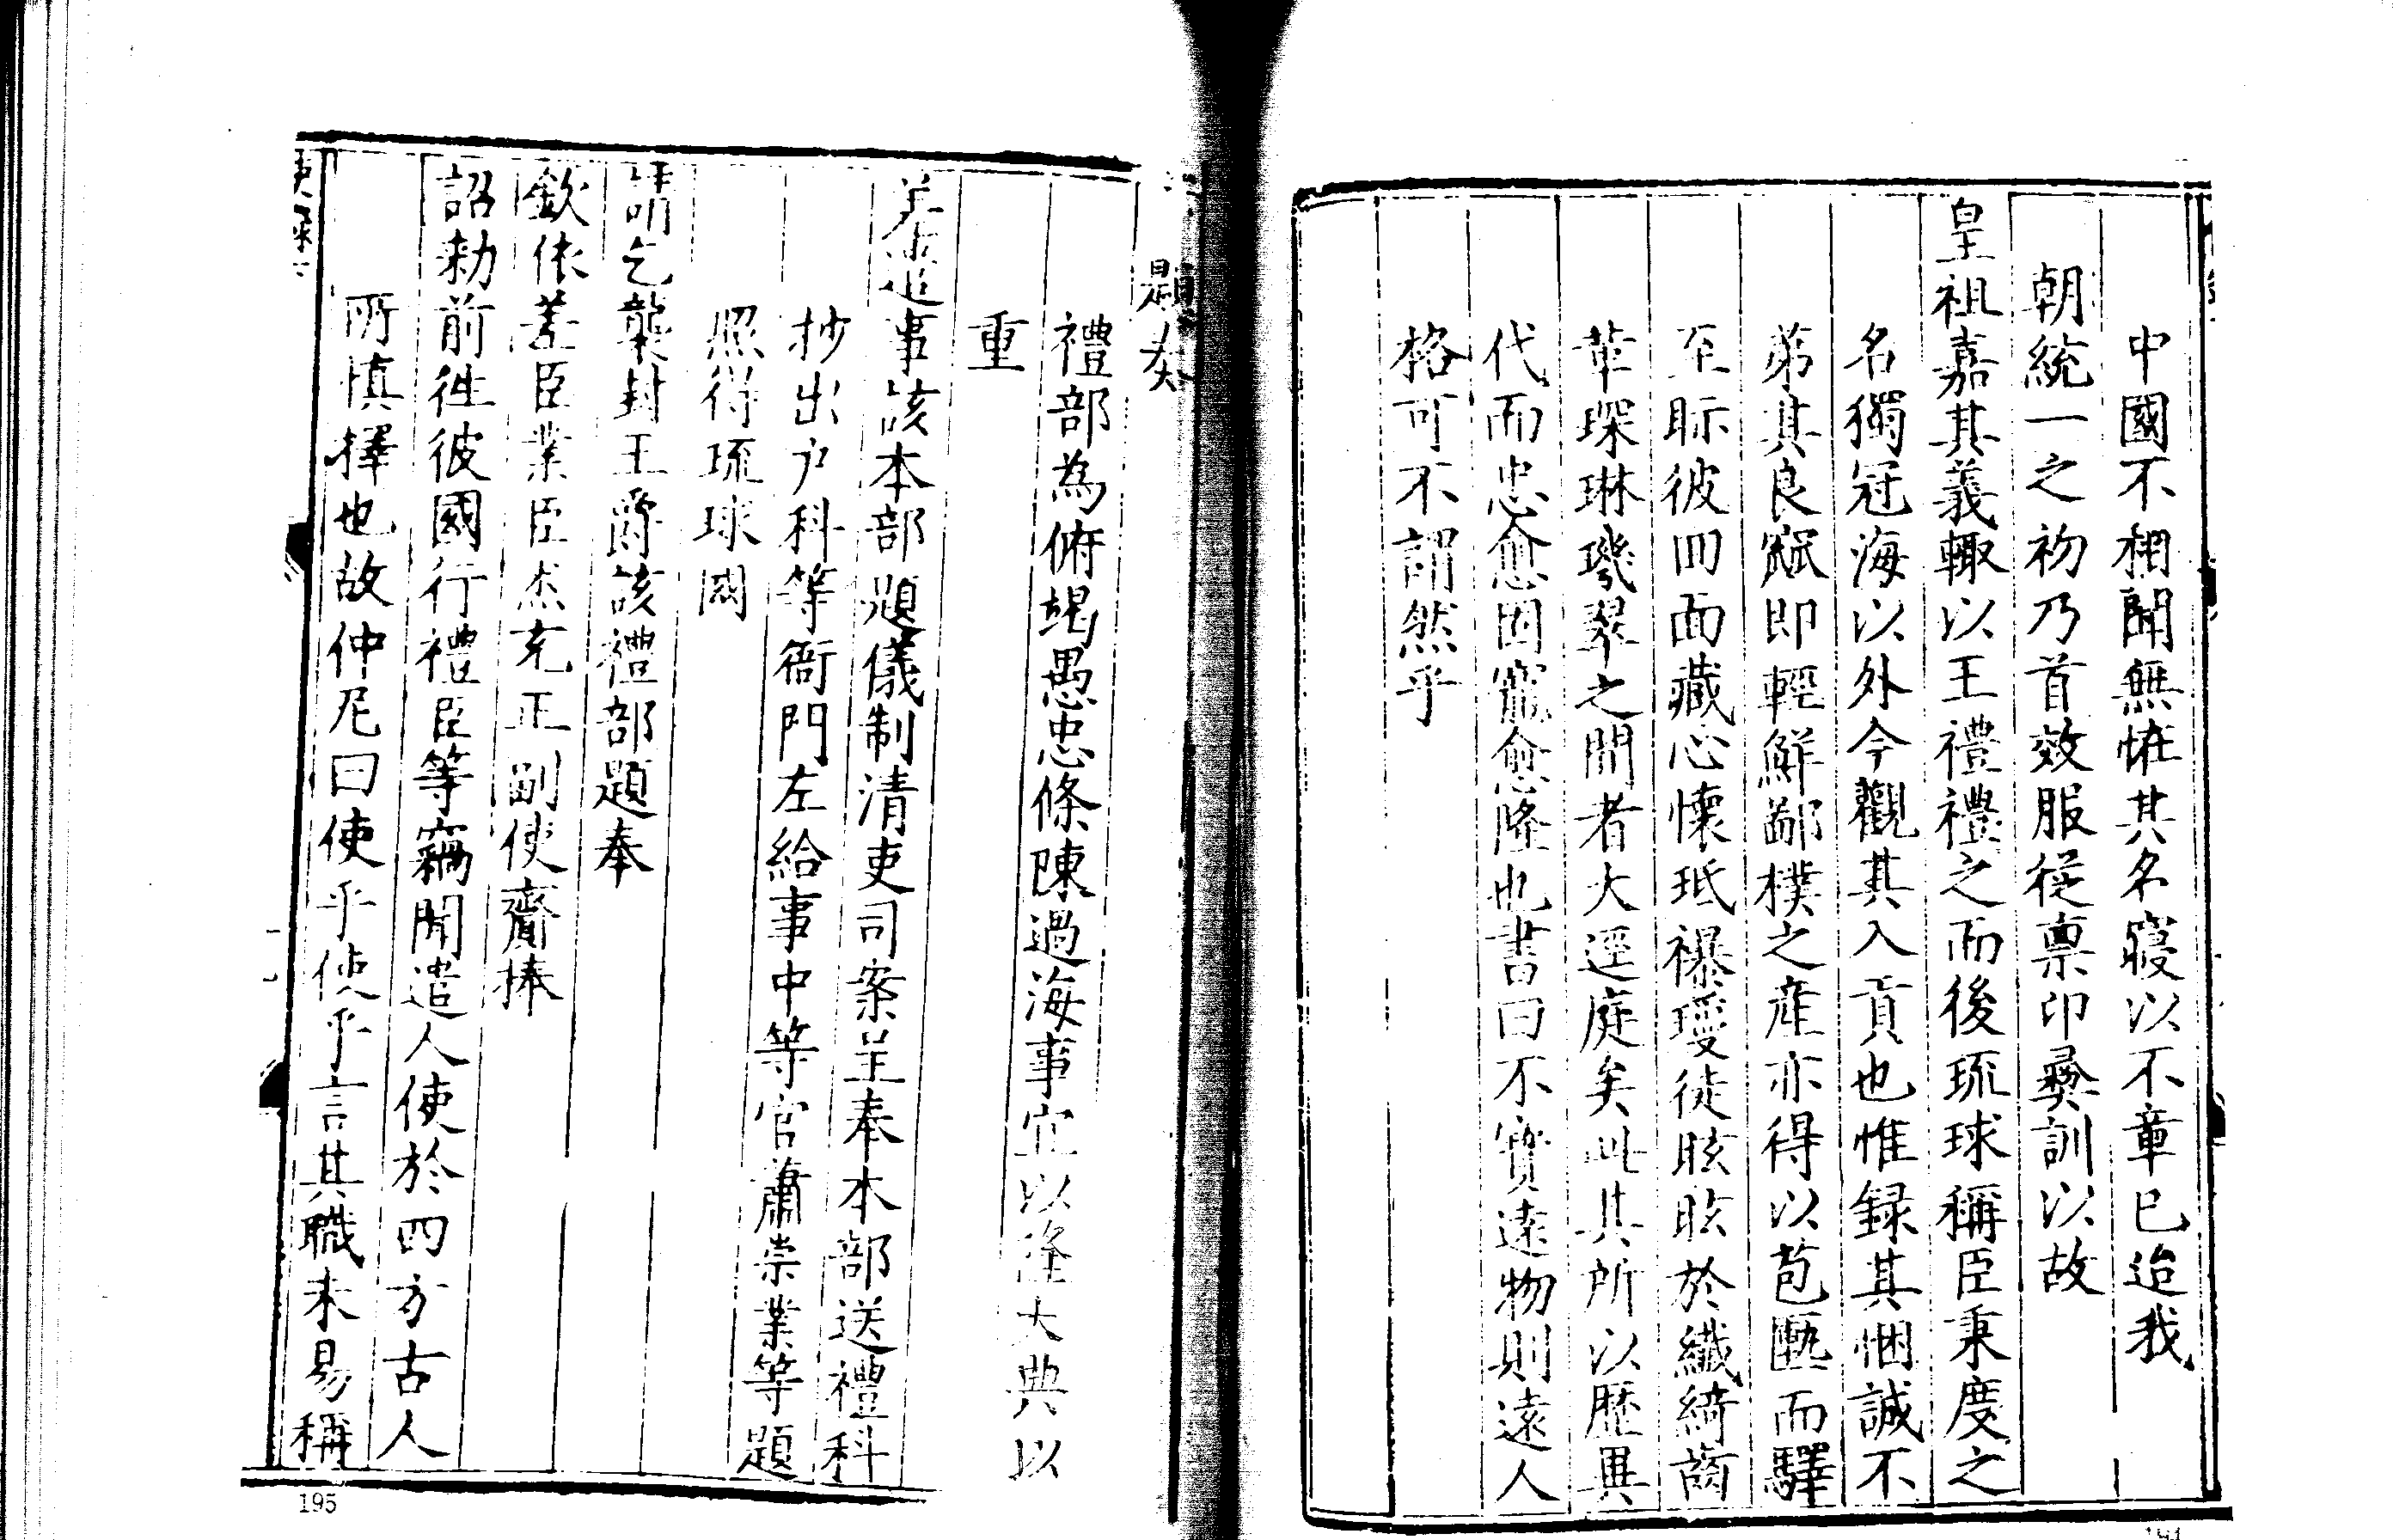 中國不相聞無恠其名寢以不章已迨我
朝統一之初乃首效服從禀印彝訓以故
皇祖嘉其義輙以王禮禮之而後琉球稱臣秉度之
名獨冠海以外今觀其入貢也惟録其悃誠不
第其良窳即輕鮮鄙樸之産亦得以苞匭而驛
至眎彼回面藏心懷珷襮璦徒眩眩於纖綺菌
華琛琳璣翠之間者大逕庭矣此其所以歷異
代而忠愈固寵愈隆也書曰不寶遠物則遠人
格可不謂然乎
題奏
禮部為俯竭愚忠條陳過海事宜以隆大典以
重
差遣事該本部題儀制清吏司案呈奉本部送禮科
抄出户科等衙門左給事中等官蕭崇業等題
照得琉球國
請乞襲封王爵該禮部題奉
欽依差臣業臣杰充正副使齎捧
詔勅前徃彼國行禮臣等竊聞遣人使於四方古人
所慎擇也故仲尼曰使乎使乎言其職未易稱
195